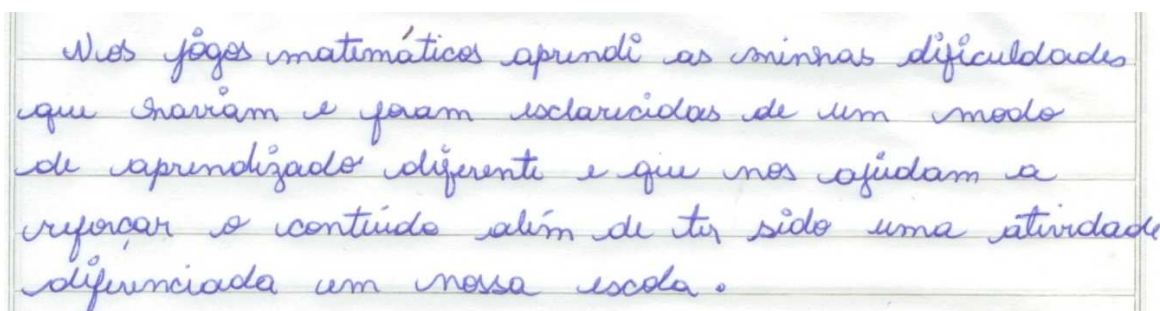 Nos jogos matemáticos aprendi as minhas dificuldades
que haviam e foram esclarecidas de um modo
de aprendizado diferente e que nos ajudam a
reforçar o conteúdo além de ter sido uma atividade
diferenciada em nossa escola.